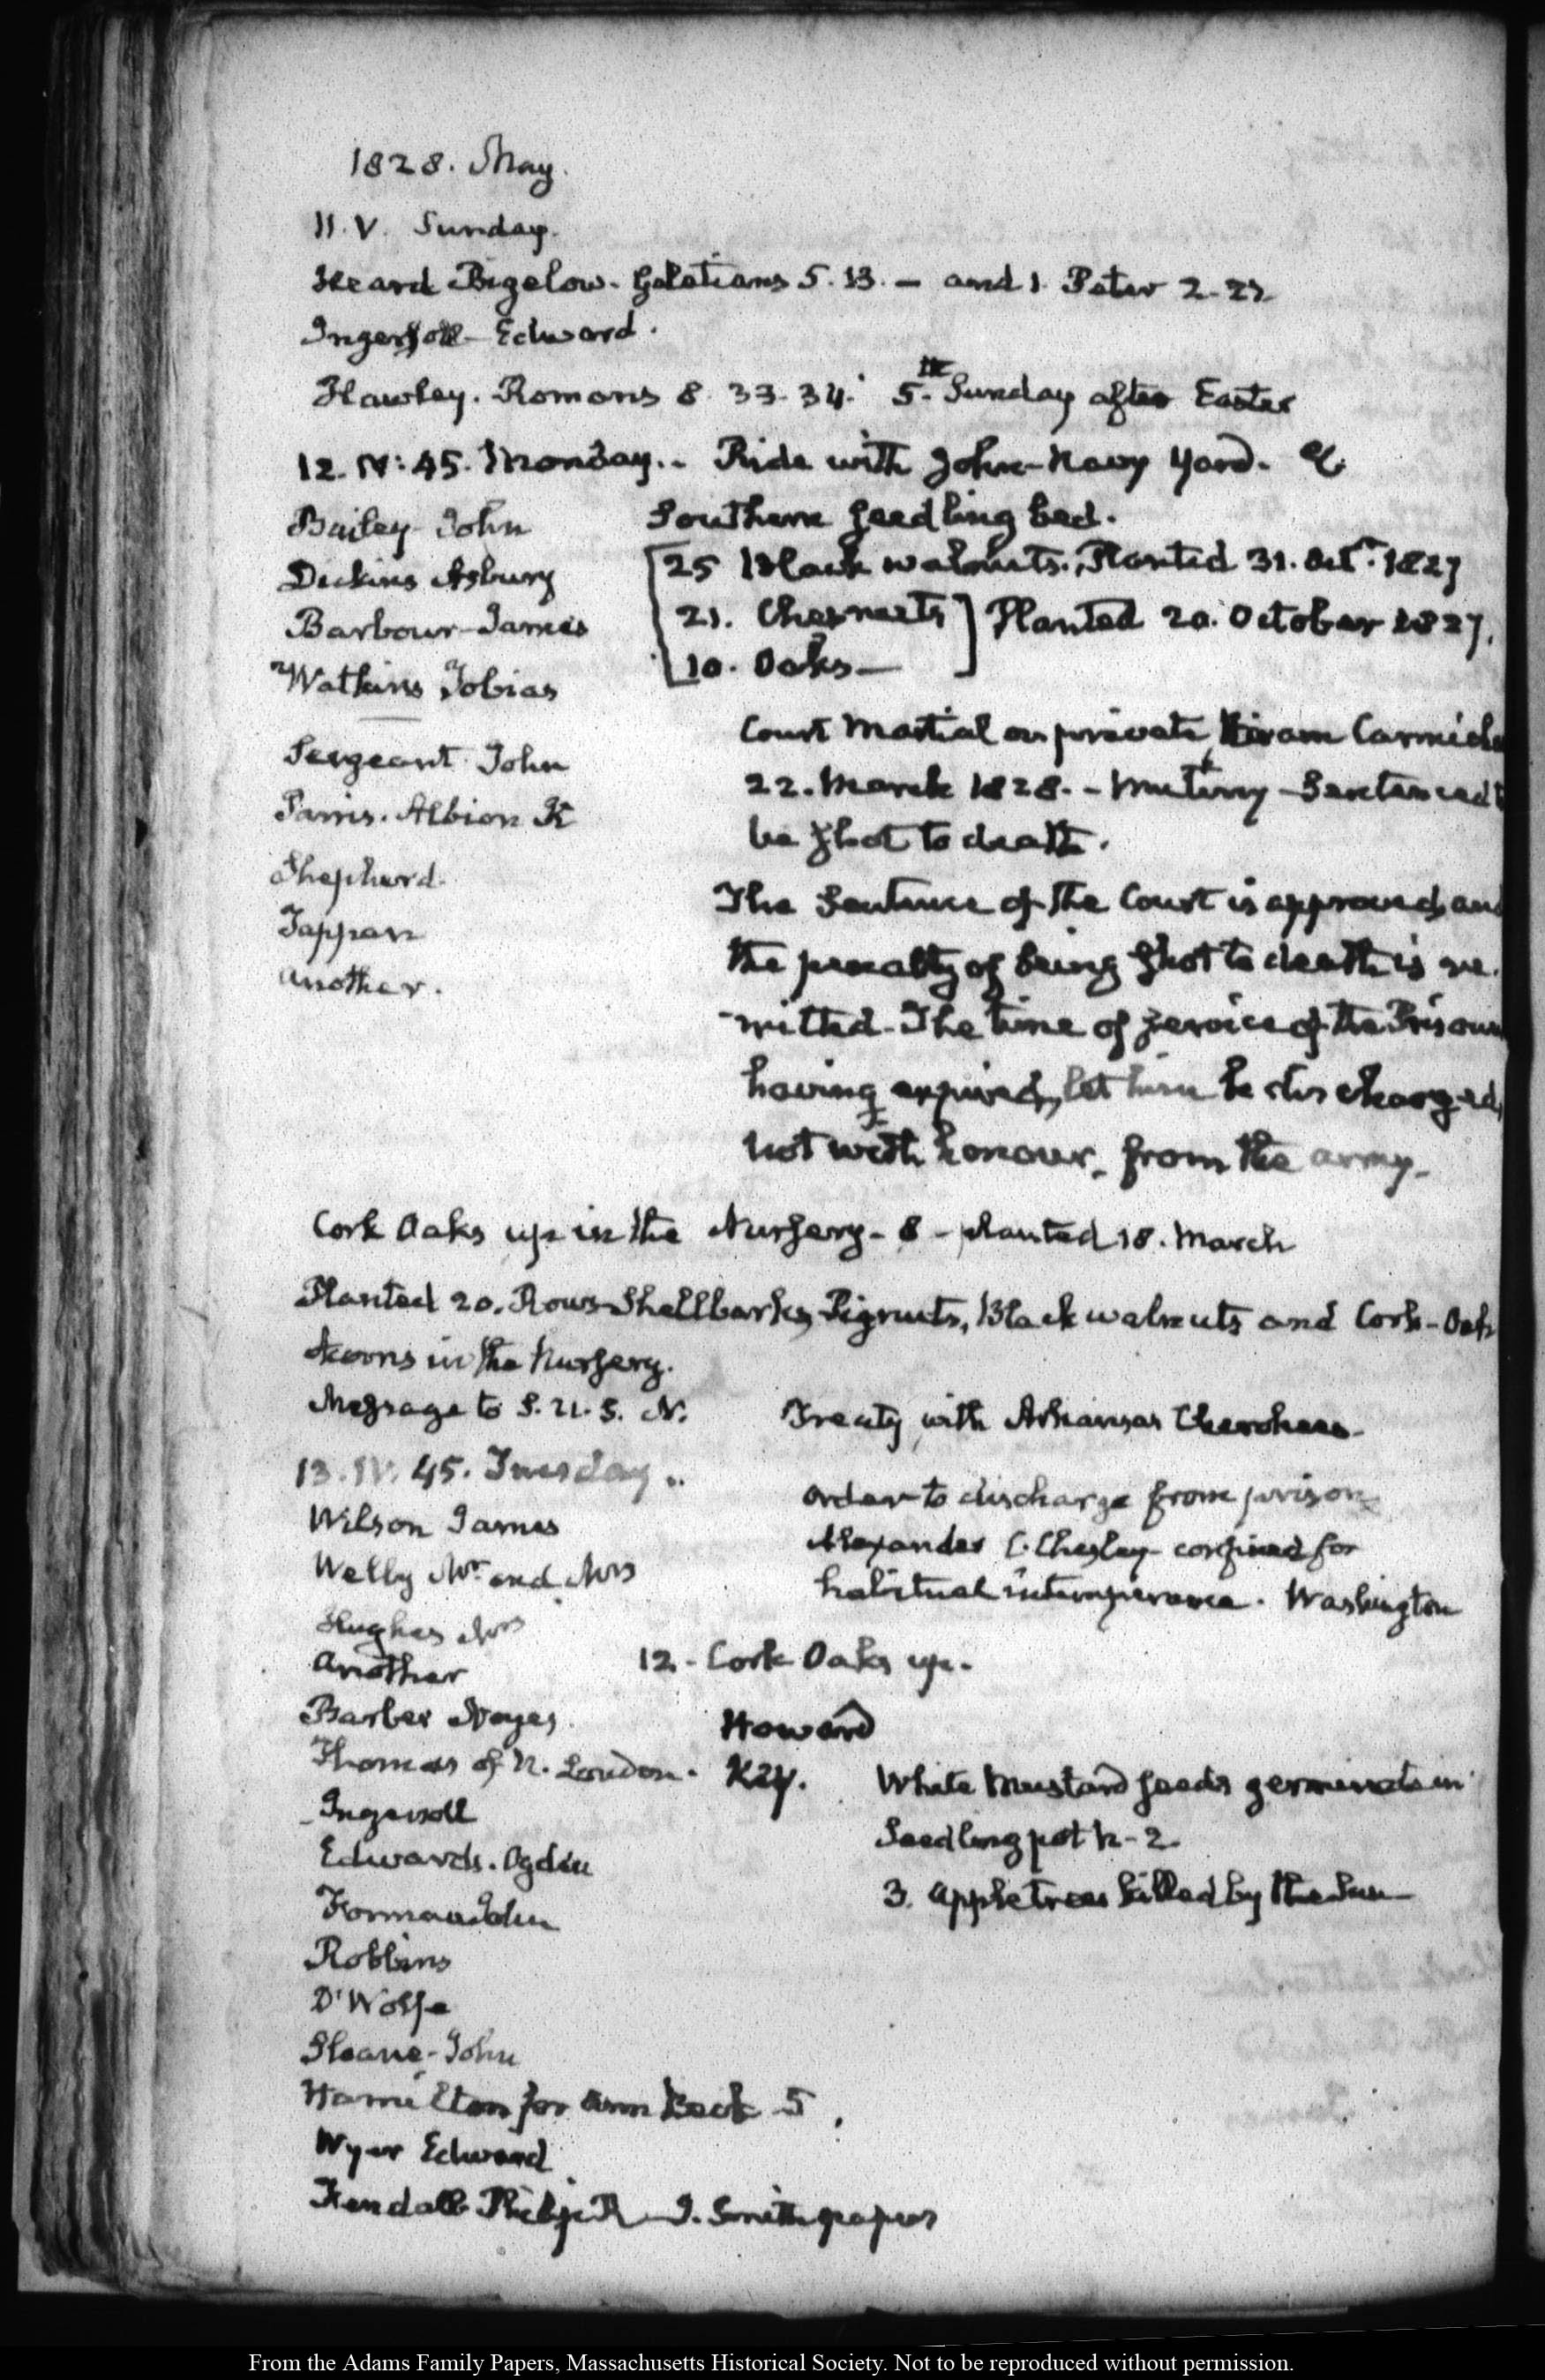 1828. May.
11. V. Sunday.
Heard Bigelow. Galatians 5. 13. — and 1. Peter 2.
Ingersoll — Edward.
Hawley. Romans 8. 33-34. 5th Sunday after Easter
12. IV: 45. Monday. - Ride with John - Navy Yard. &c
Bailey John
Dickins Asbury
Barbour - James
Watkins Tobias
Sergeant John
Parris. Albion K
Shepherd.
Tappan
another.
Southern Seedling bed.
25 Black walnuts. Planted 31. Octr. 1827
21. Chesnuts ] Planted 20. October 1827.
10. Oaks —
Court Martial on private Hiram
22. March 1828. - Mutiny - Sentenced
be shot to death.
The Sentence of the Court is approved, and
the penalty of being shot to death is re-
-mitted. The time of service of the
having expired, let him be discharged,
not with honour, from the army.
Cork Oaks up in the Nursery - 8 - planted 18. March
Planted 20. Rows Shellbarks, Pignuts, Black walnuts and Cork-Oak
Acorns in the Nursery.
Message to S. U. S. N. Treaty with Arkansas Cherokees.
13. IV. 45. Tuesday.
Wilson James
Welby Mr. and Mrs
Hughes Mrs
another
Barber Noyes
Thomas of N. London.
Ingersoll
Edwards. Ogden
Forman John
Robbins
D'Wolfe
Sloane - John
Hamilton for Ann Beck 5.
Wyer Edward
Fendall Philip R — J. Smith papers
order to discharge from prison
Alexander C. Chesley confined for
habitual intemperance. Washington
12. Cork Oaks up.
Howard
Key.
White Mustard seeds germinate in
Seedling pot N - 2.
3. apple trees killed by the Sun
From the Adams Family Papers, Massachusetts Historical Society. Not to be reproduced without permission.